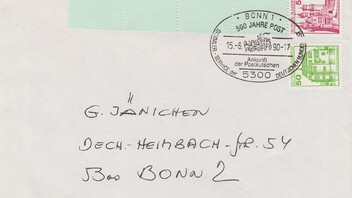 BONN 1
500 JAHRE POST
15.-6. 90-17
Ankunft
der Postkutschen
5300
50
G. JÄNICHEN
DECH.-HEIMBACH-Str. 54
5300 BONN 2